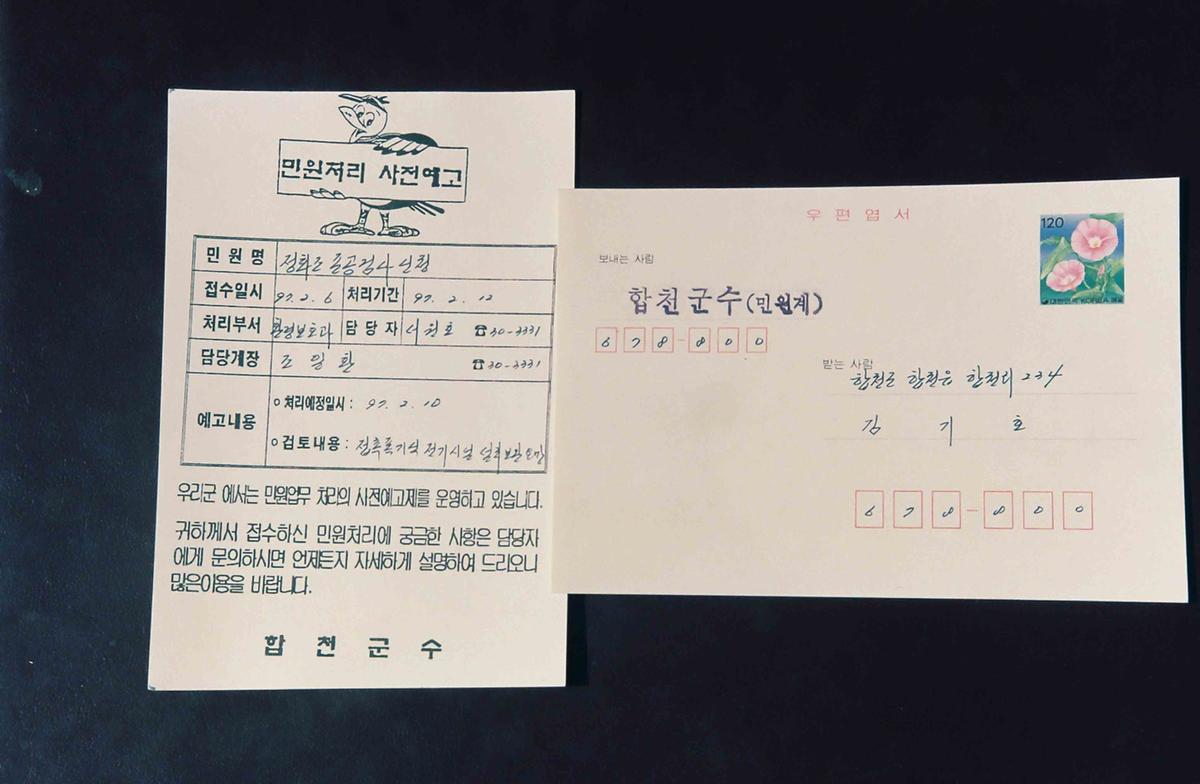 민원처리 사전예고
민원명 정화조 준공검사 신청
접수일시 97. 2. 6 처리기간 97. 2. 12
처리부서 환경보호과 담당자 서원호 ☎30-3331
담당계장 조일환 ☎30-3331
예고내용
○처리예정일시 : 97. 2. 10
○검토내용 : 접촉폭기식 전기시설
우리군 에서는 민원업무 처리의 사전예고제를 운영하고 있습니다.
귀하께서 접수하신 민원처리에 궁금한 사항은 담당자
에게 문의하시면 언제든지 자세하게 설명하여 드리오니
많은이용을 바랍니다.
합천군수
우편엽서
120
대한민국 KOREA
보내는 사람
합천군수(민원계)
678-800
받는 사람
합천군 합천읍 합천리 234
김기호
678-800